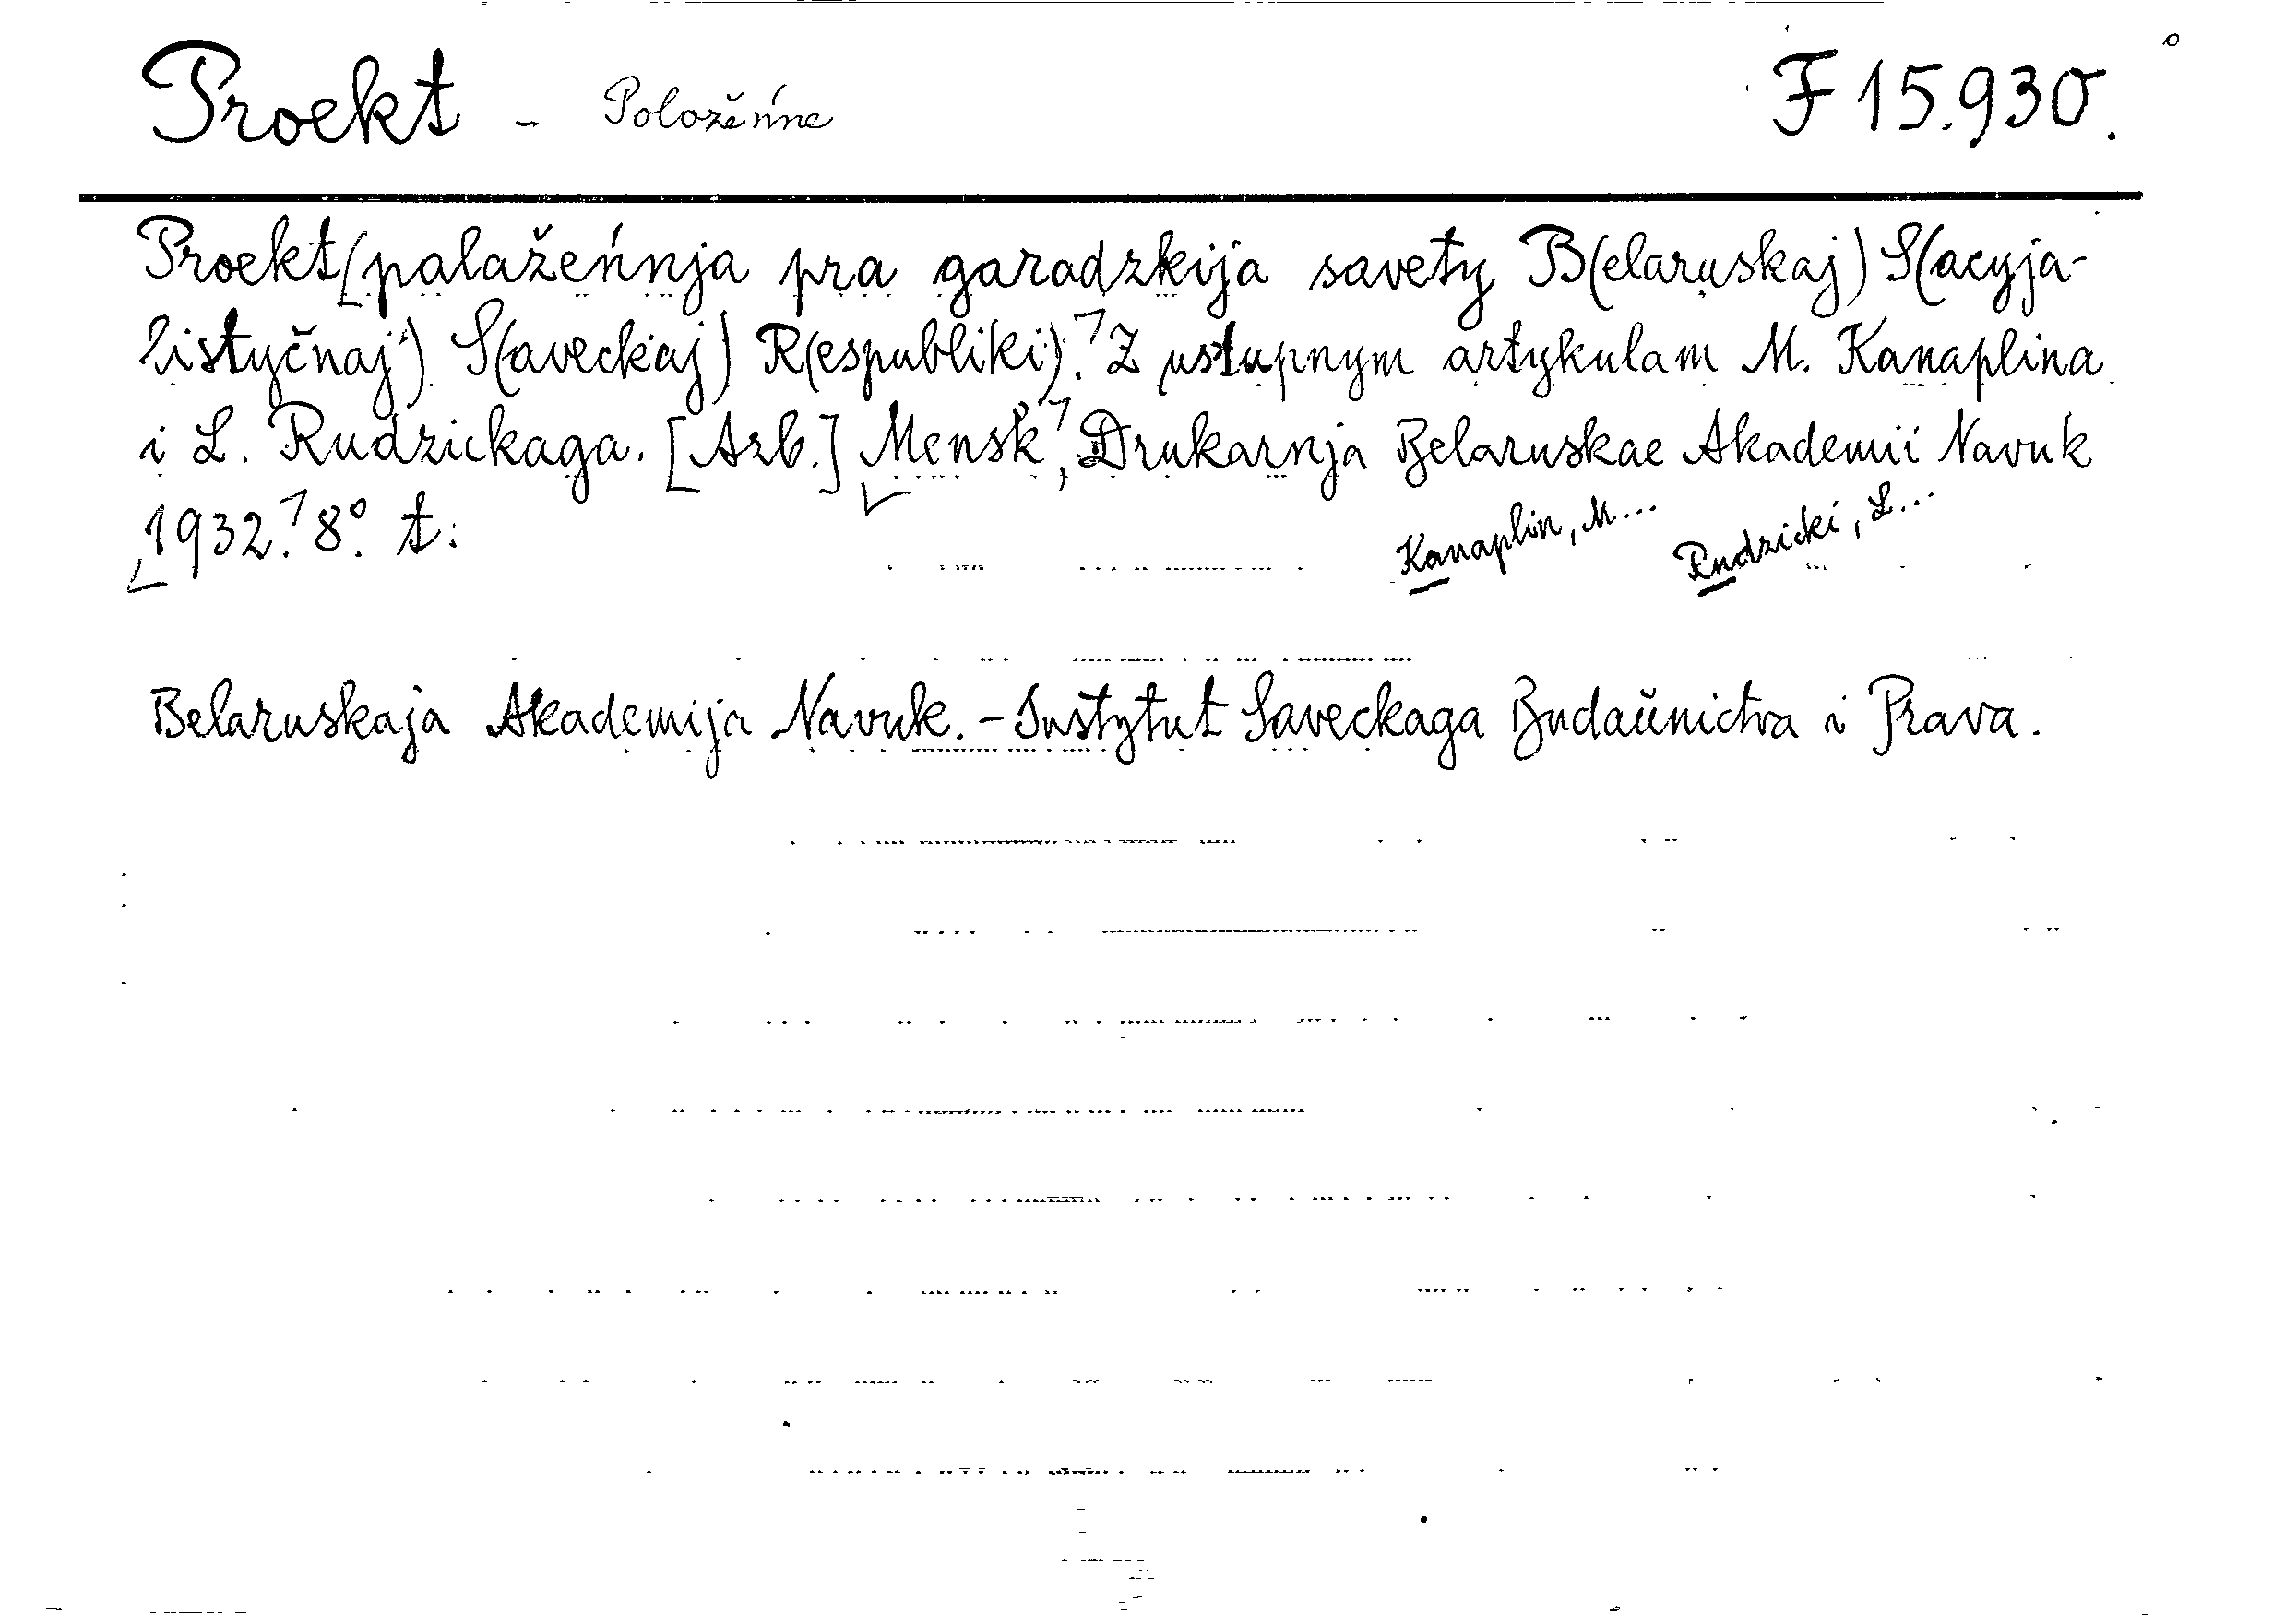 Proekt - Položeńne F 15.930.
Proekt palažeńnja pra garadzkija savety B(elaruskaj) S(acyja-
listyčnaj) S(aveckaj) R(espubliki). Z ustupnym artykulam M. Kanaplina
i L. Rudzickaga. [Azb.] Mensk, Drukarnja Belaruskae Akademii Navuk
1932. 8° t:
Kanaplin, M... Rudzicki, L...
Belaruskaja Akademija Navuk. - Instytut Saveckaga Budaŭnictva i Prava.